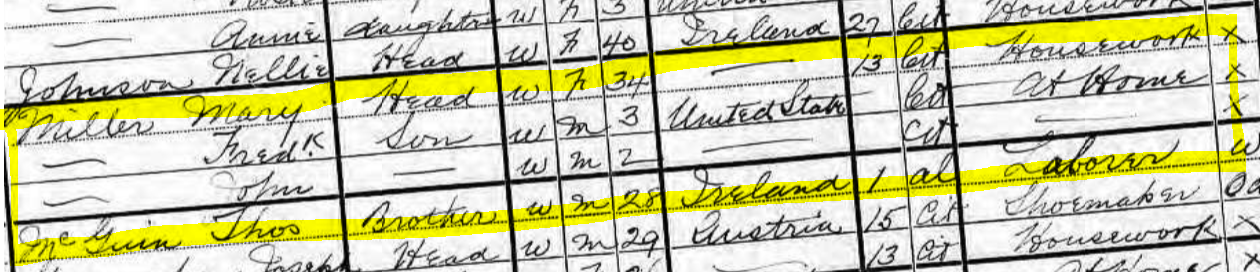 daughter W F 3
— Annie
Johnson Nellie Head W F 40 Ireland 27 Cit Housework X
Miller Mary Head W F 34 — 13 Cit Housework X
— Fred.k Son W M 3 United State Cit At Home X
— John — W M 2 — Cit —
McGuin Thos Brother W M 28 Ireland 1 al Laborer W
Joseph Head W M 29 Austria 15 Cit Shoemaker
13 Cit Housework X
At Home